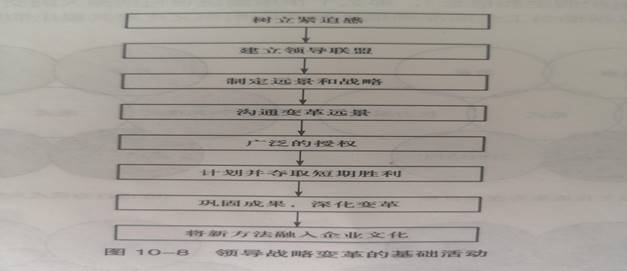 树立紧迫感
建立领导联盟
制定远景和战略
沟通变革远景
广泛的授权
计划并夺取短期胜利
巩固成果，深化变革
将新方法融入企业文化
图 10-8 领导战略变革的基础活动